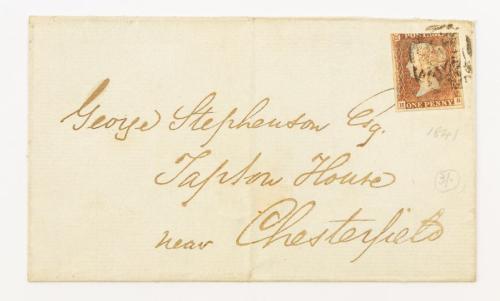 POSTAGE
ONE PENNY
George Stephenson Esq.
1841
Tapton House
3/-
near Chesterfield